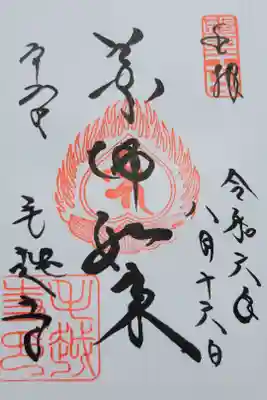 奉拝
令和六年
八月十六日
薬師如来
平泉
毛越寺